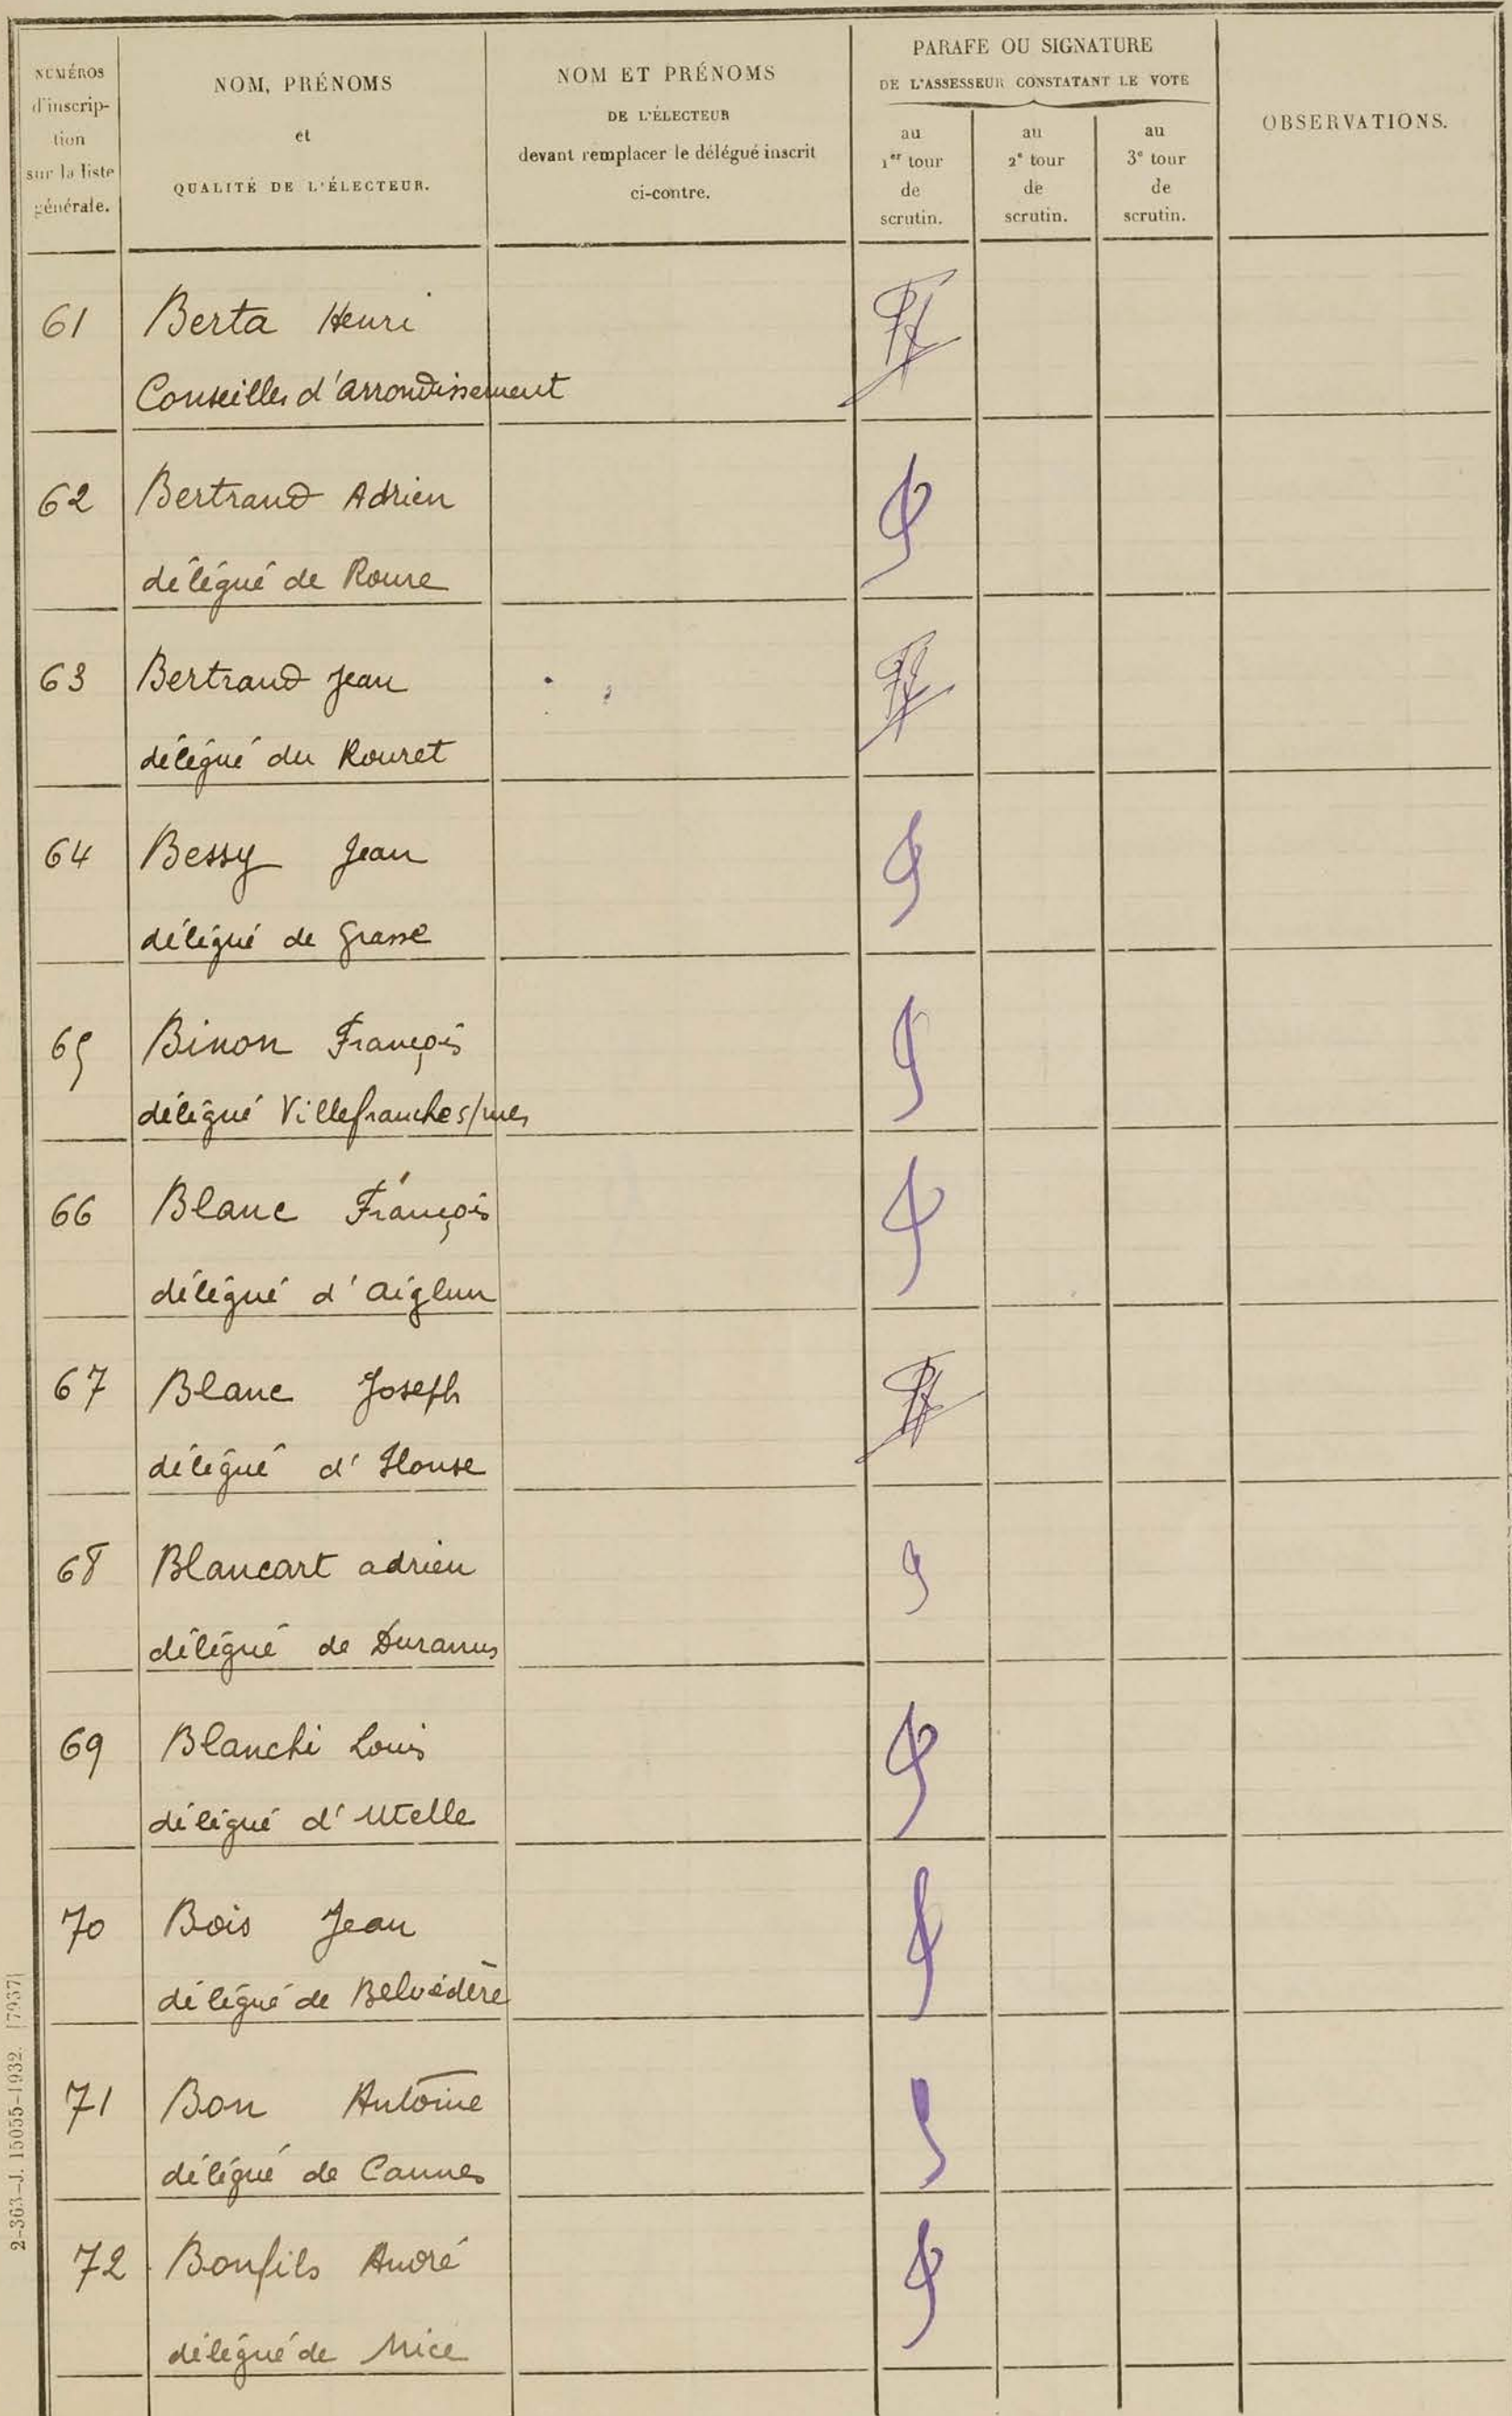 NUMÉROS
d'inscrip-
tion
sur la liste
générale.
NOM, PRÉNOMS
et
QUALITÉ DE L'ÉLECTEUR.
NOM ET PRÉNOMS
DE L'ÉLECTEUR
devant remplacer le délégué inscrit
ci-contre.
PARAFE OU SIGNATURE
DE L'ASSESSEUR CONSTATANT LE VOTE
au
1er tour
de
scrutin.
au
2e tour
de
scrutin.
au
3e tour
de
scrutin.
OBSERVATIONS.
61 Berta Henri
Conseiller d'arrondissement
62 Bertrand Adrien
délégué de Roure
63 Bertrand Jean
délégué du Rouret
64 Bessy Jean
délégué de Grasse
65 Binon François
délégué Villefranche s/mer
66 Blanc François
délégué d'Aiglun
67 Blanc Joseph
délégué d'Ilonse
68 Blancart adrien
délégué de Duranus
69 Blanchi Louis
délégué d'Utelle
70 Bois Jean
délégué de Belvédère
71 Bon Antoine
délégué de Cannes
72 Bonfils André
délégué de Nice
2-363-J. 15055-1932. [7937]